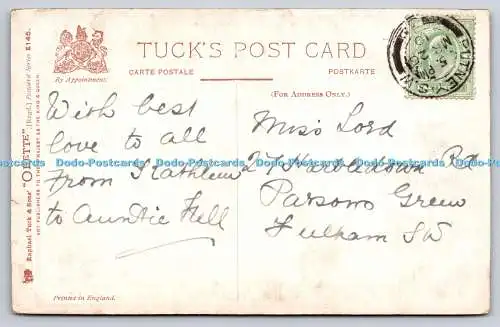 TUCK'S POST CARD
By Appointment.
CARTE POSTALE
POSTKARTE
(FOR ADDRESS ONLY.)
Raphael Tuck & Sons' "OILETTE"
ART PUBLISHERS TO THEIR MAJESTIES THE KING & QUEEN.
PUTNEY. S.W
With best
love to all
From Kathleen
to Auntie Nell
Miss Lord
27 Rd
Parsons Green
Fulham SW
Dodo-Postcards Dodo-Postcards Dodo-Postcards Dodo-Postcards Dodo-Postcards
Printed in England.